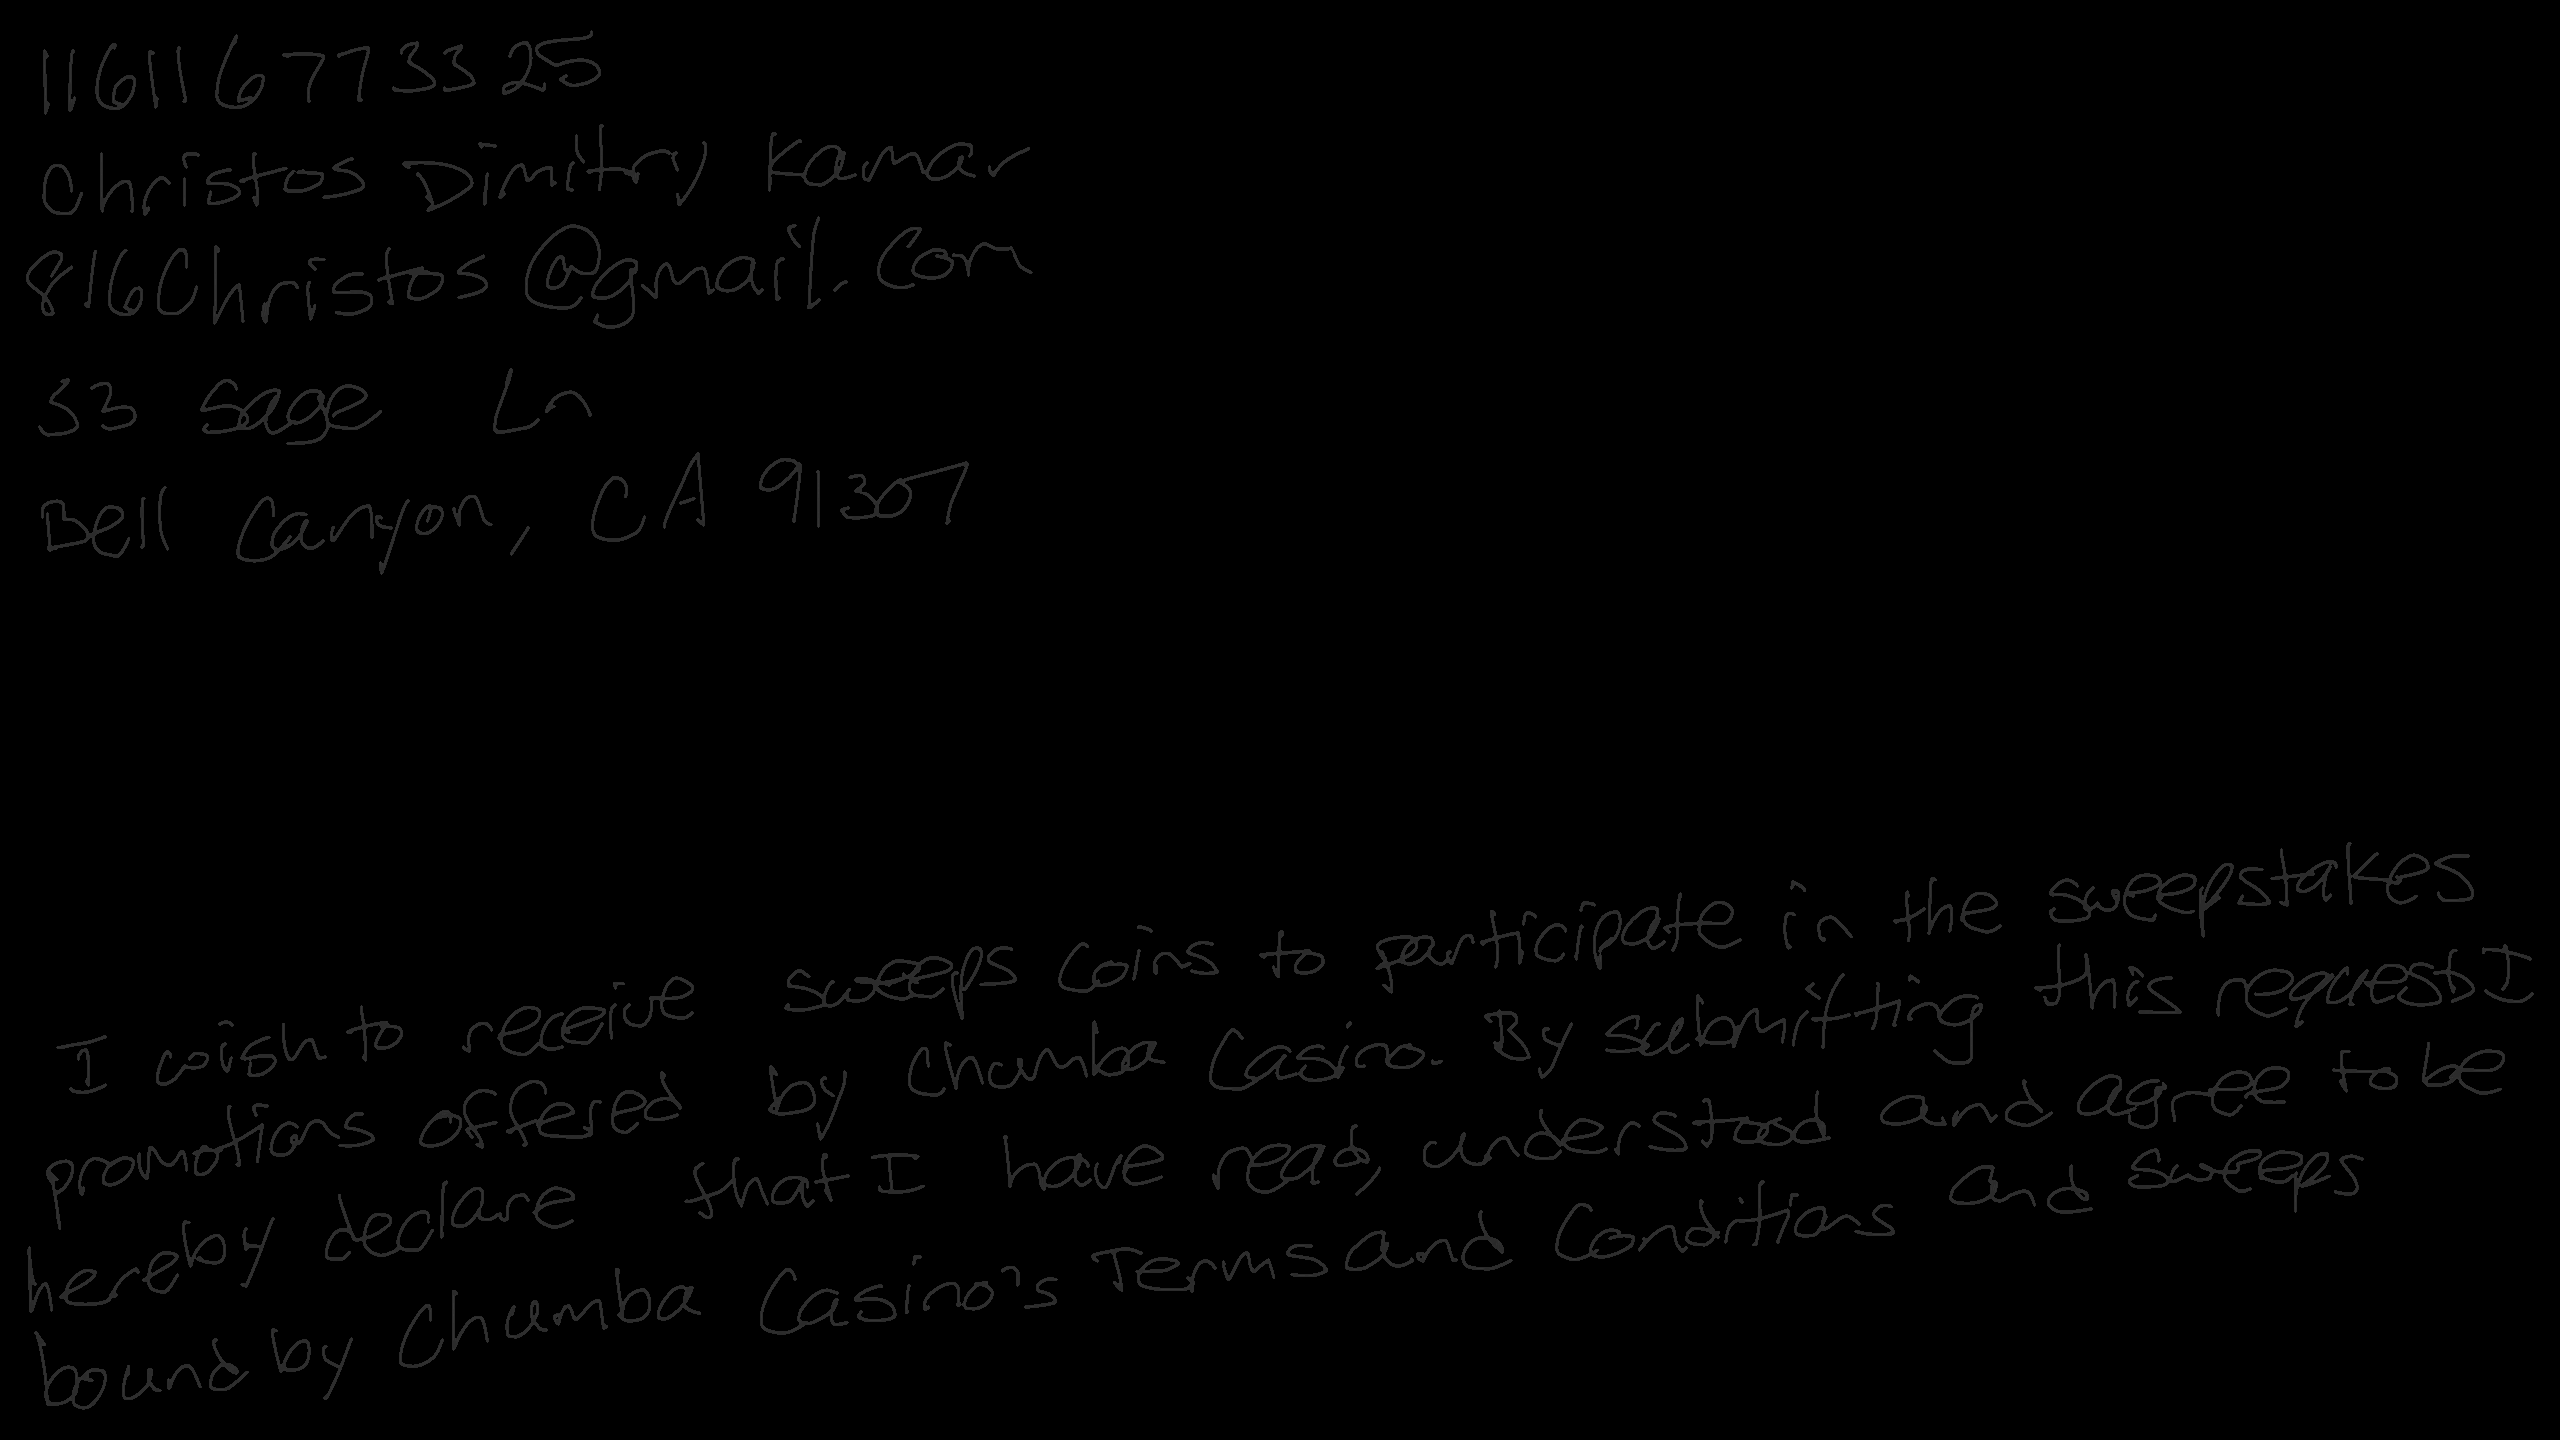 116116773325
Christos Dimitry Kamar
816Christos@gmail.com
33 Sage Ln
Bell Canyon, CA 91307
I wish to receive sweeps coins to participate in the sweepstakes
promotions offered by Chumba Casino. By submitting this request I
hereby declare that I have read, understood and agree to be
bound by Chumba Casino's Terms and Conditions and sweeps